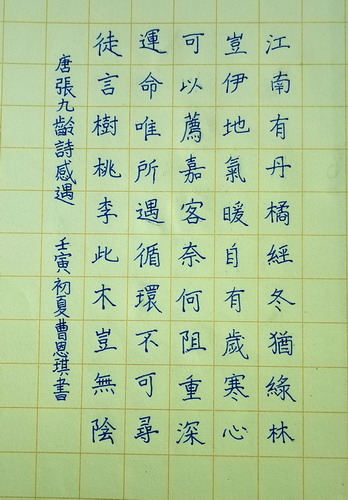 江南有丹橘經冬猶綠林
豈伊地氣暖自有歲寒心
可以薦嘉客奈何阻重深
運命唯所遇循環不可尋
徒言樹桃李此木豈無陰
唐張九齡詩感遇 壬寅初夏曹恩琪書